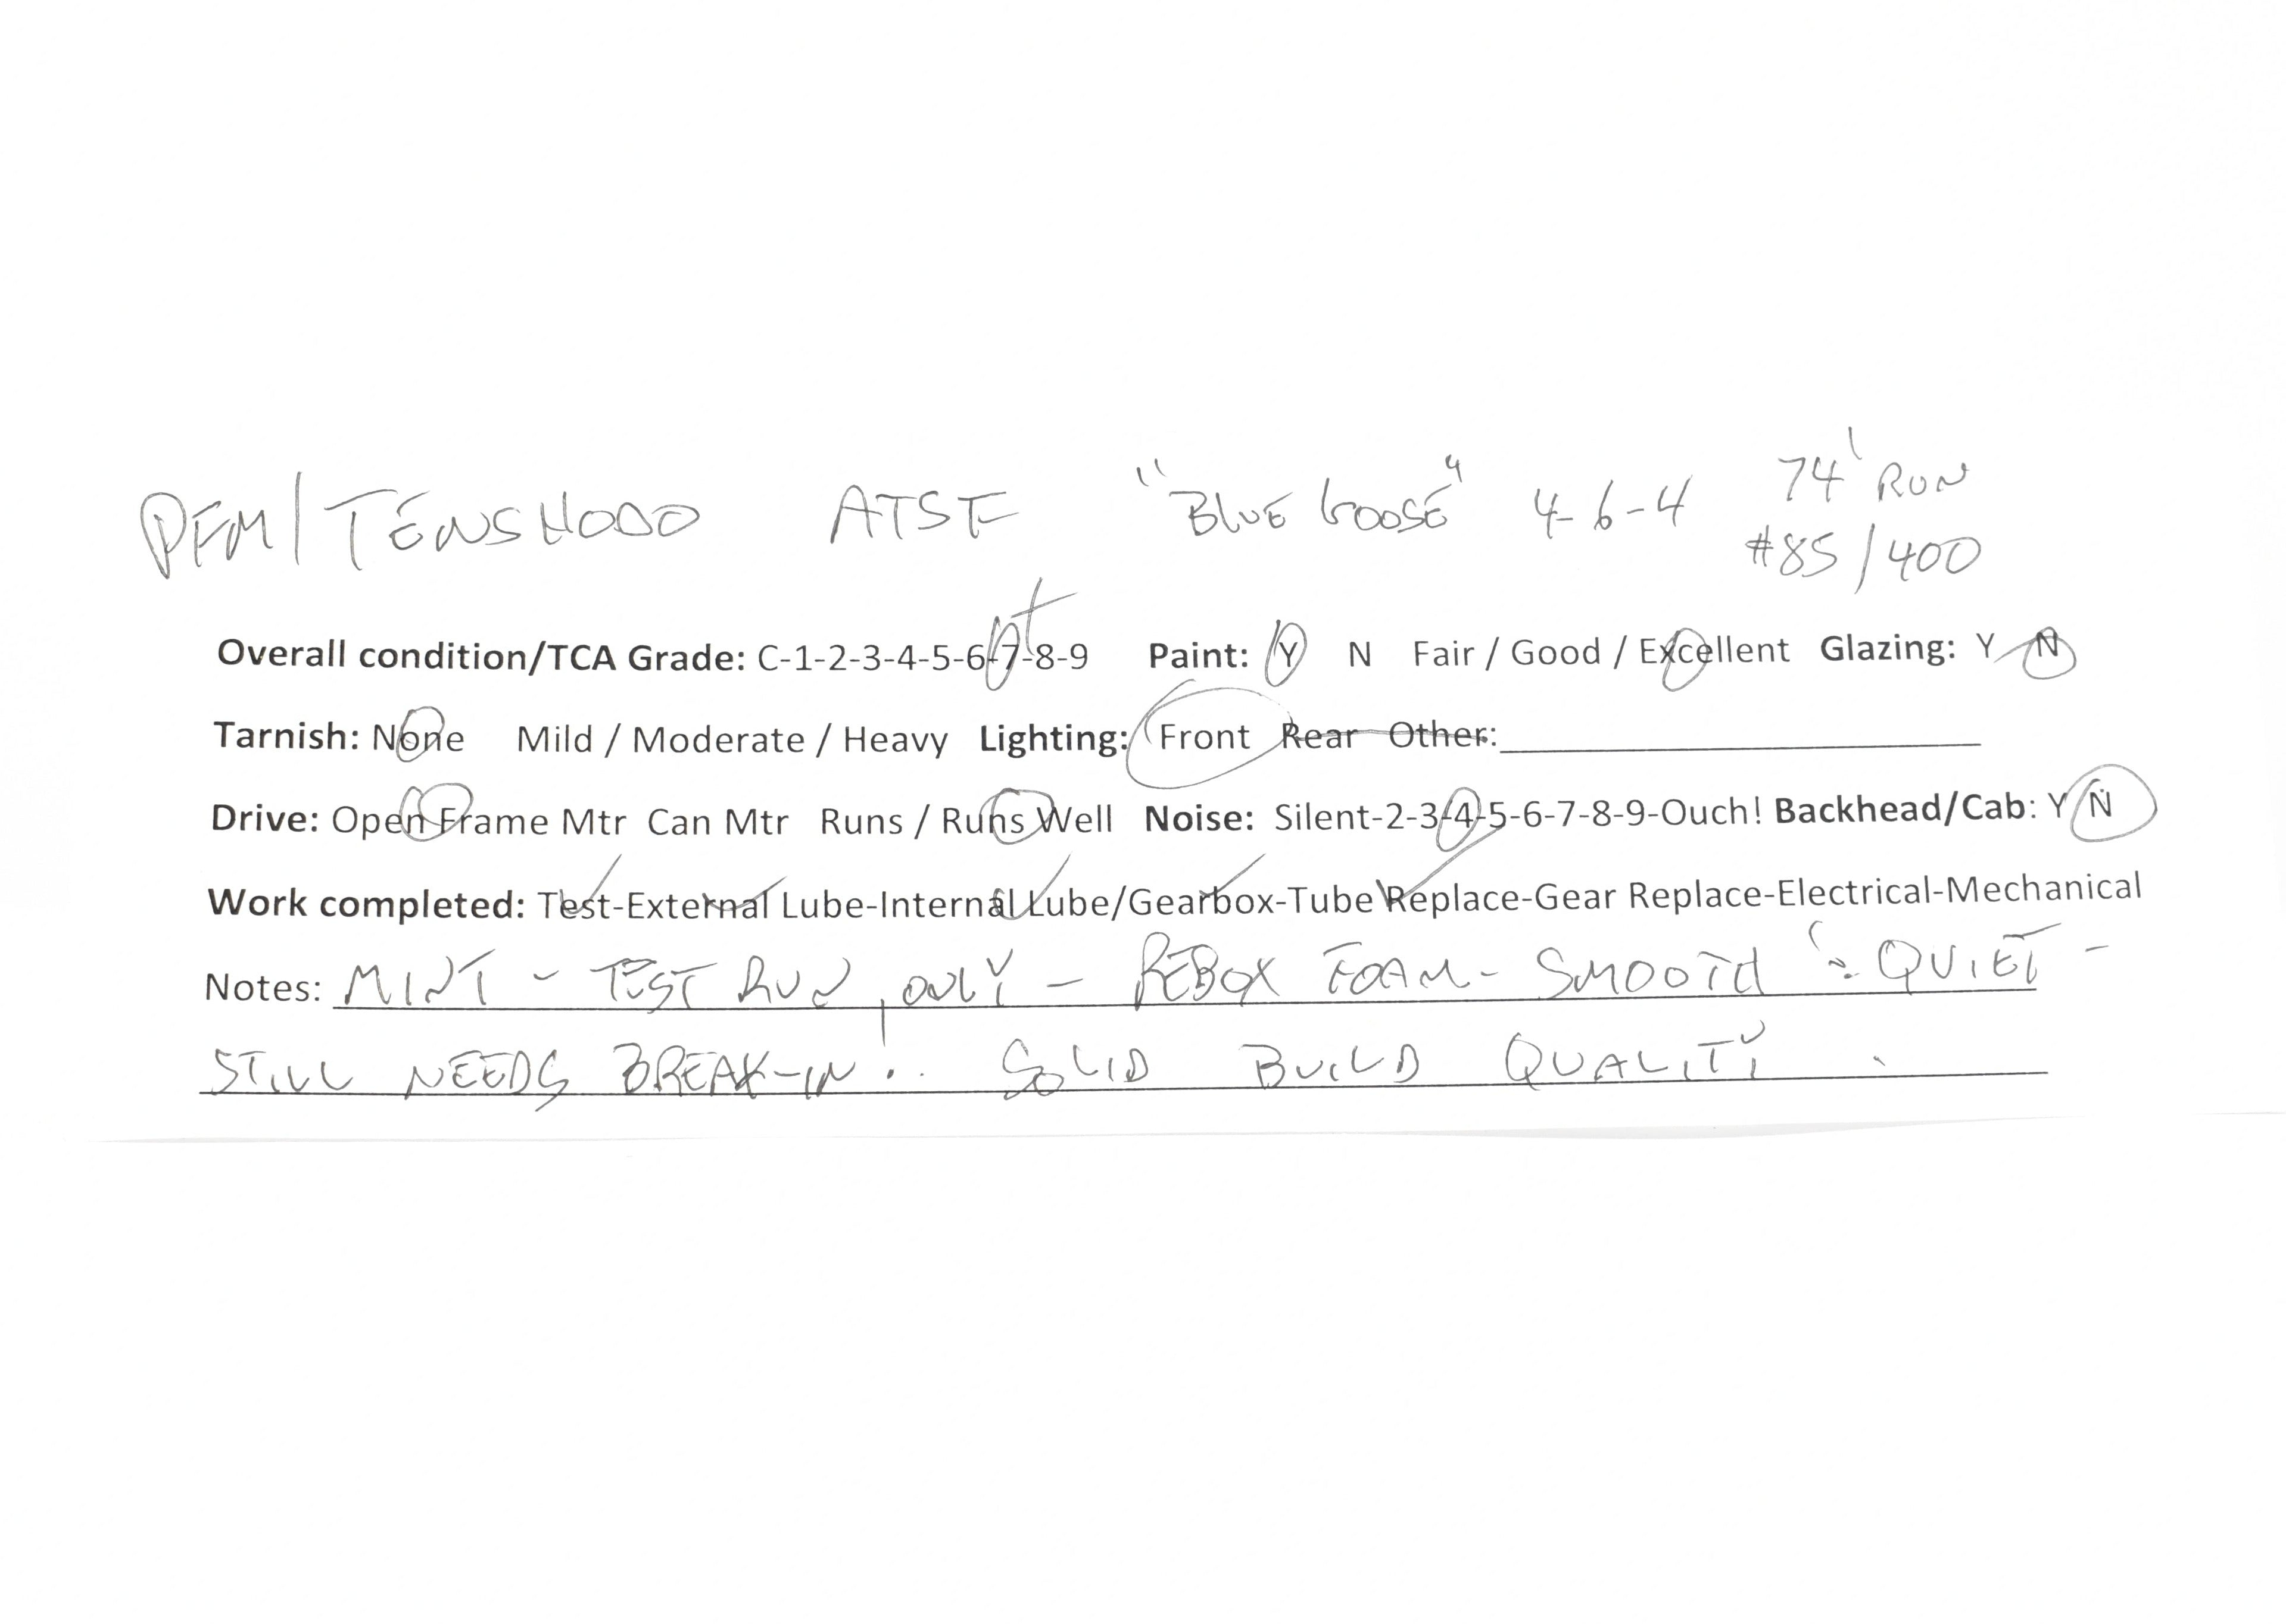 PFM/TENSHODO ATSF "BLUE GOOSE" 4-6-4 74' RUN
#85/400
Overall condition/TCA Grade: C-1-2-3-4-5-6-7-8-9 + Paint: Y N Fair / Good / Excellent Glazing: Y N
Tarnish: None Mild / Moderate / Heavy Lighting: Front Rear Other:
Drive: Open Frame Mtr Can Mtr Runs / Runs Well Noise: Silent-2-3-4-5-6-7-8-9-Ouch! Backhead/Cab: Y N
Work completed: Test-External Lube-Internal Lube/Gearbox-Tube Replace-Gear Replace-Electrical-Mechanical
Notes: MINT - TEST RUN ONLY - REBOX FOAM - SMOOTH & QUIET -
STILL NEEDS BREAK-IN! . SOLID BUILD QUALITY.